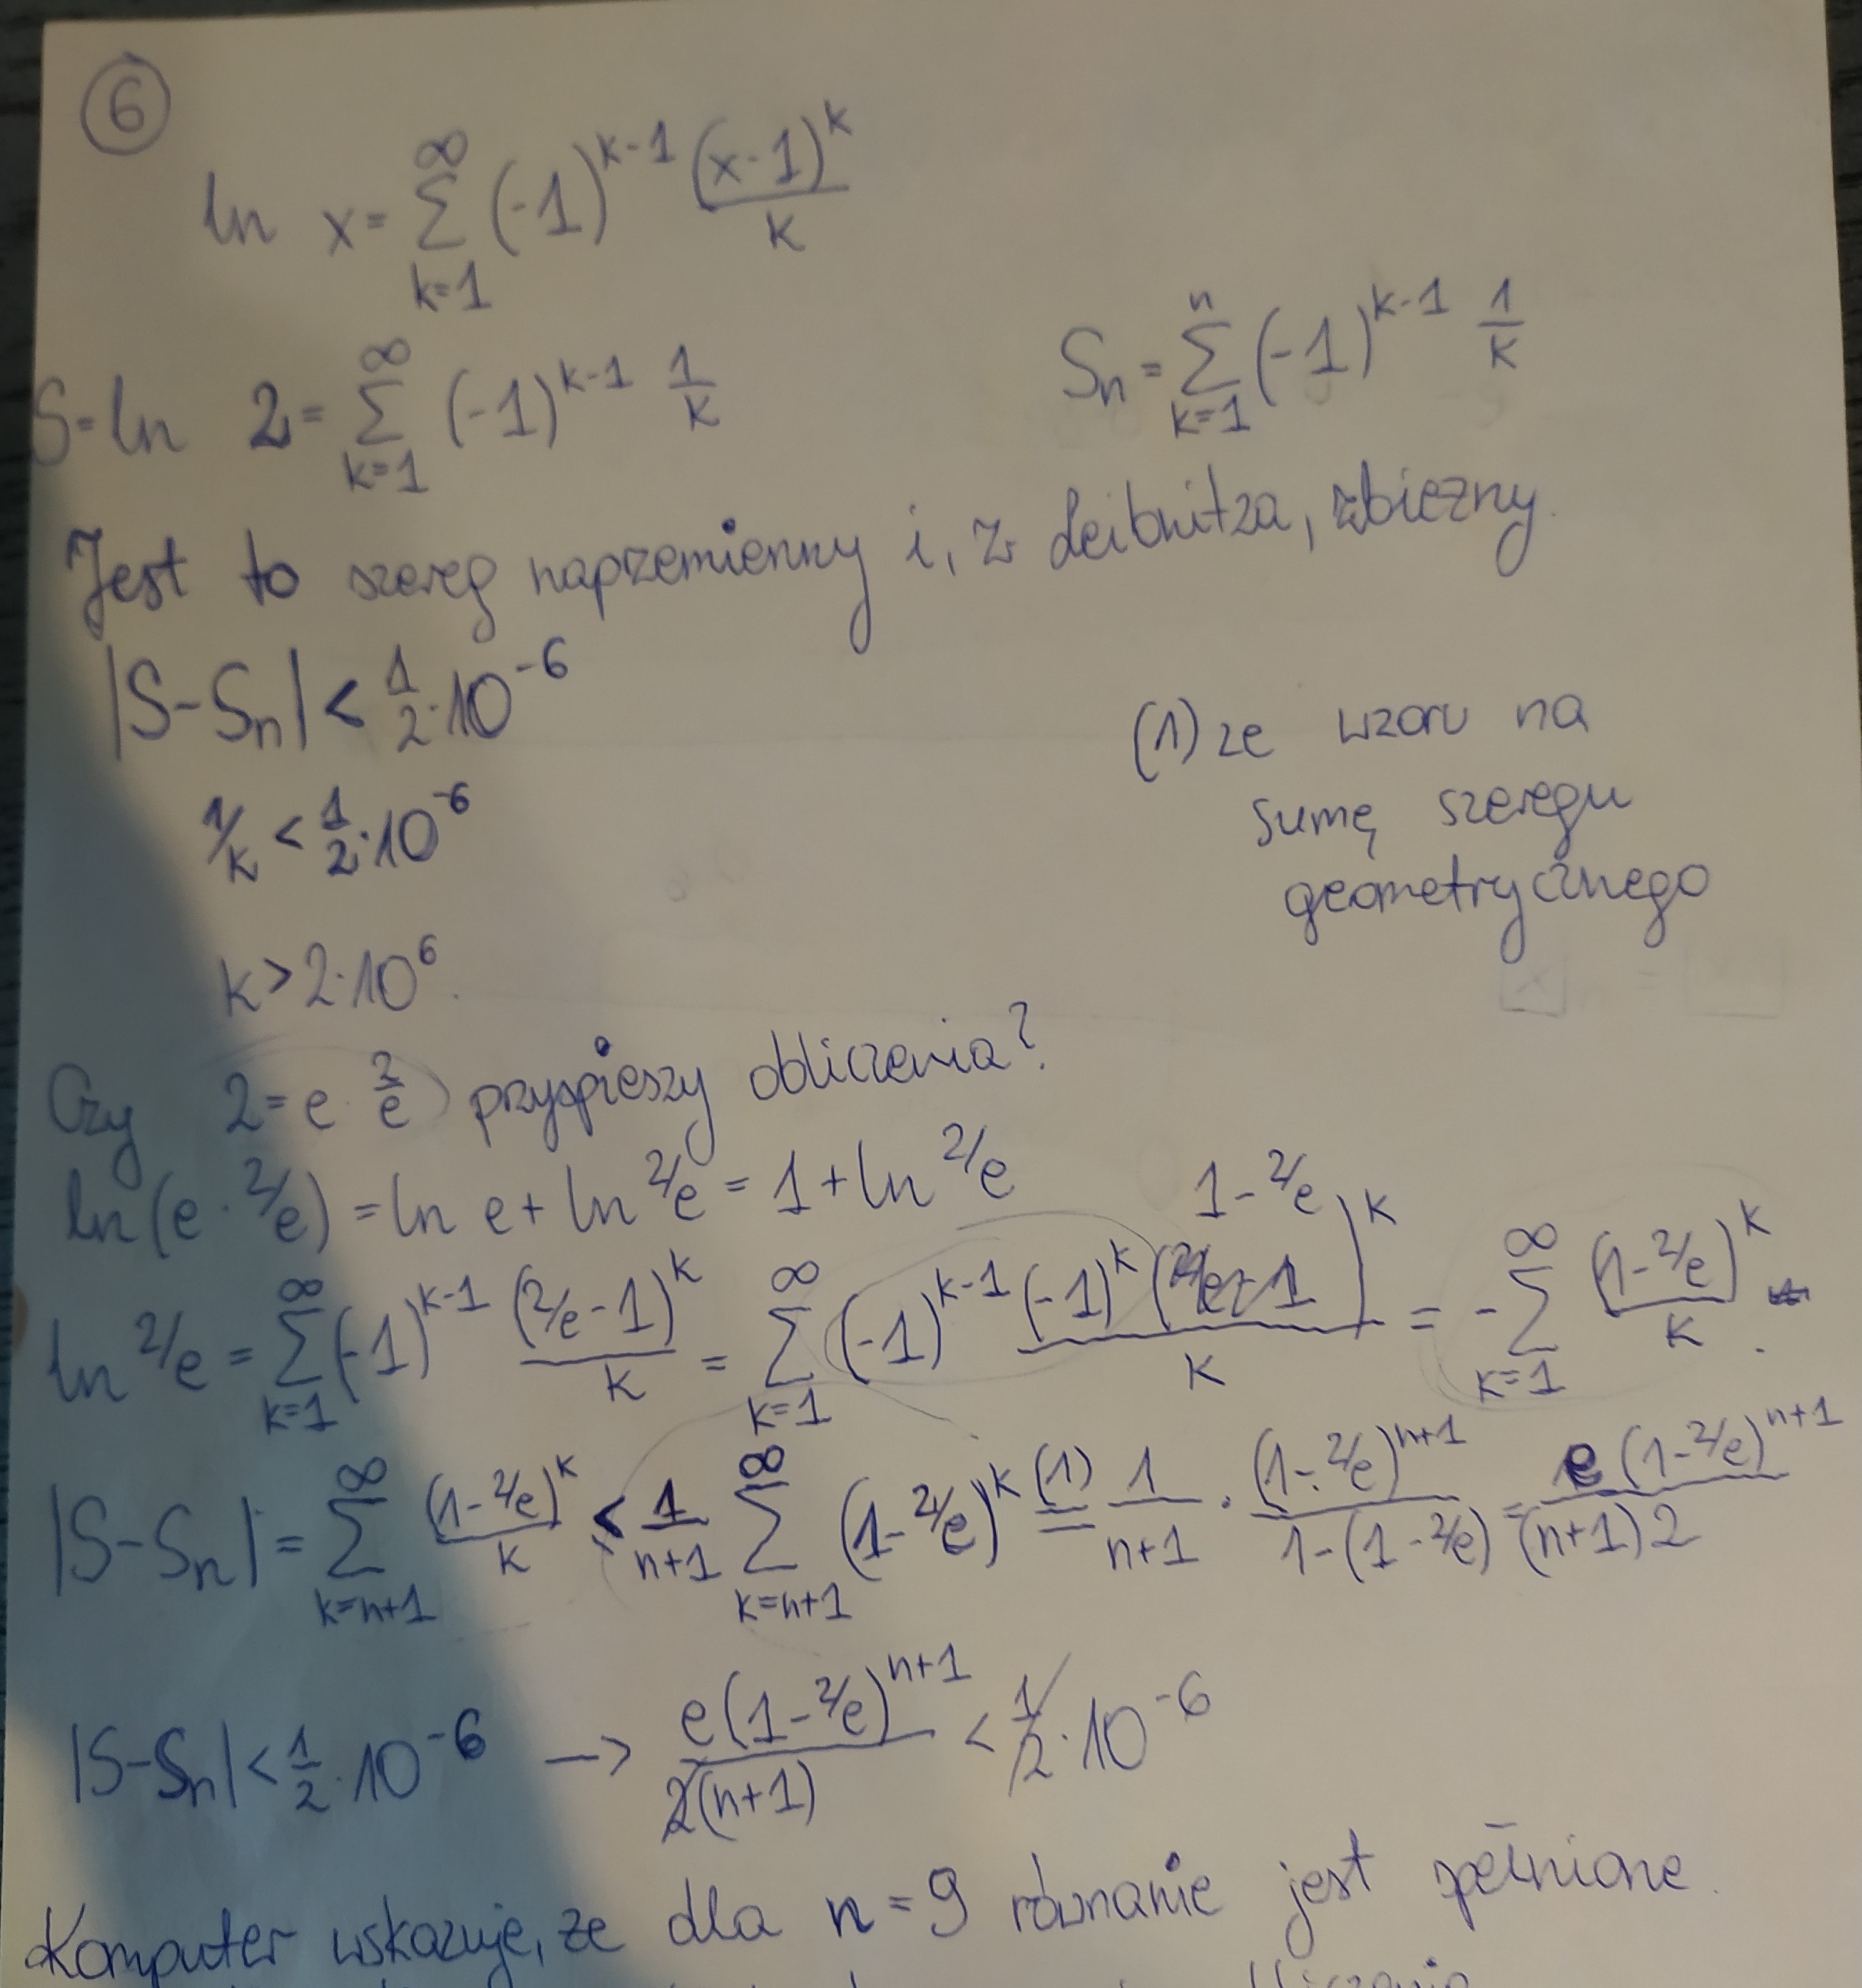 6
ln x = ∑_{k=1}^{∞} (-1)^{k-1} (x-1)^k / k
S = ln 2 = ∑_{k=1}^{∞} (-1)^{k-1} 1/k
S_n = ∑_{k=1}^{n} (-1)^{k-1} 1/k
Jest to szereg naprzemienny i, z Leibnitza, zbieżny.
|S-S_n| < 1/2·10^{-6}
1/k < 1/2·10^{-6}
k > 2·10^6.
(1) ze wzoru na
sumę szeregu
geometrycznego
Czy 2 = e·2/e przyspieszy obliczenia?
ln(e·2/e) = ln e + ln 2/e = 1 + ln 2/e
1-2/e
ln 2/e = ∑_{k=1}^{∞} (-1)^{k-1} (2/e-1)^k / k = ∑_{k=1}^{∞} (-1)^{k-1} (-1)^k ( )^k / k = -∑_{k=1}^{∞} (1-2/e)^k / k.
|S-S_n| = ∑_{k=n+1}^{∞} (1-2/e)^k / k < 1/(n+1) ∑_{k=n+1}^{∞} (1-2/e)^k =^{(1)} 1/(n+1) · (1-2/e)^{n+1} / (1-(1-2/e)) = e(1-2/e)^{n+1} / ((n+1)2)
|S-S_n| < 1/2·10^{-6} → e(1-2/e)^{n+1} / (2(n+1)) < 1/2·10^{-6}
Komputer wskazuje, że dla n = 9 równanie jest spełnione.